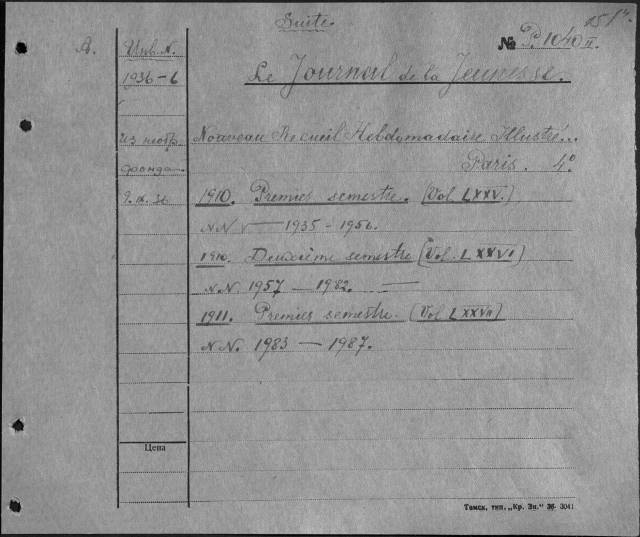 Suite.
15 1^4.
A. Инв. N. № P. 1040 II.
1936-6 Le Journal de la Jeunesse.
из необр. Nouveau Recueil Hebdomadaire Illustré...
фонда Paris. 4°
9.IX.36 1910. Premier semestre. (Vol. LXXV.)
NN 1935 - 1956.
1910. Deuxième semestre (Vol. LXXVI)
NN. 1957 — 1982.
1911. Premier semestre. (Vol LXXVII)
NN. 1983 — 1987.
Цена
Томск, тип. „Кр. Зн." 36 3041